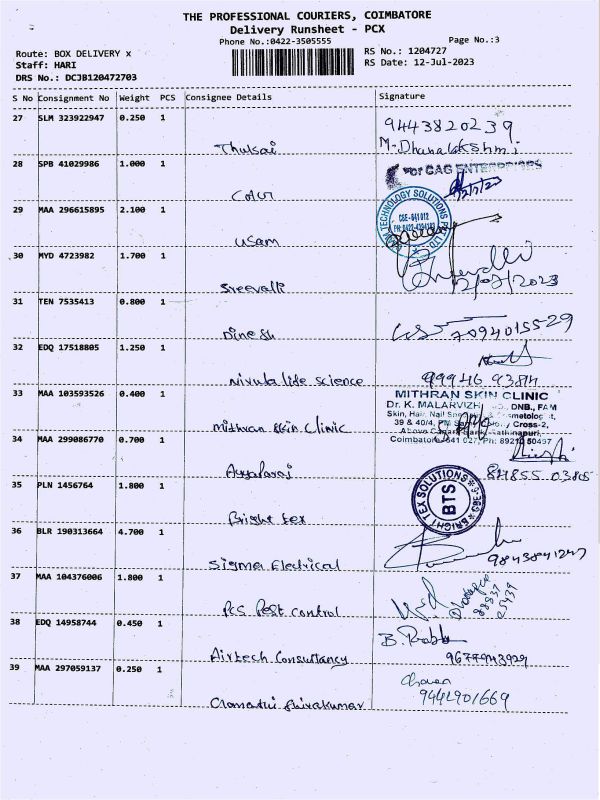 THE PROFESSIONAL COURIERS, COIMBATORE
Delivery Runsheet - PCX
Phone No.:0422-3505555
Page No.:3
Route: BOX DELIVERY x
RS No.: 1204727
Staff: HARI
RS Date: 12-Jul-2023
DRS No.: DCJB120472703
S No Consignment No Weight PCS Consignee Details Signature
27 SLM 323922947 0.250 1 9443820239
Thulsai M. Dhanalakshmi
28 SPB 41029986 1.000 1 For CAG ENTERPRISES
29 MAA 296615895 2.100 1 TECHNOLOGY SOLUTIONS PVT LTD
CBE-641012
usam
30 MYD 4723982 1.700 1
Sreevalli 12/07/2023
31 TEN 7535413 0.800 1
Dinesh 7094015529
32 EDQ 17518805 1.250 1
Nivula life science 99946 93814
33 MAA 103593526 0.400 1 MITHRAN SKIN CLINIC
Dr. K. MALARVIZHI DNB., FAM
Skin, Hair, Nail
39 & 40/4, Cross-2,
Mithran Skin Clinic Above Canara Bank, Rathinapuri,
34 MAA 299086770 0.700 1 Coimbatore 641 027, Ph: 89210 50497
35 PLN 1456764 1.800 1 BRIGHT TEX SOLUTIONS
BTS
Bright tex
36 BLR 190313664 4.700 1
Sigma Electrical 9843841247
37 MAA 104376006 1.800 1
Pcs Pest Control
38 EDQ 14958744 0.450 1 B. Prabhu
Airtech Consultancy 9677943929
39 MAA 297059137 0.250 1
Gomathi Sivakumar 9442901669